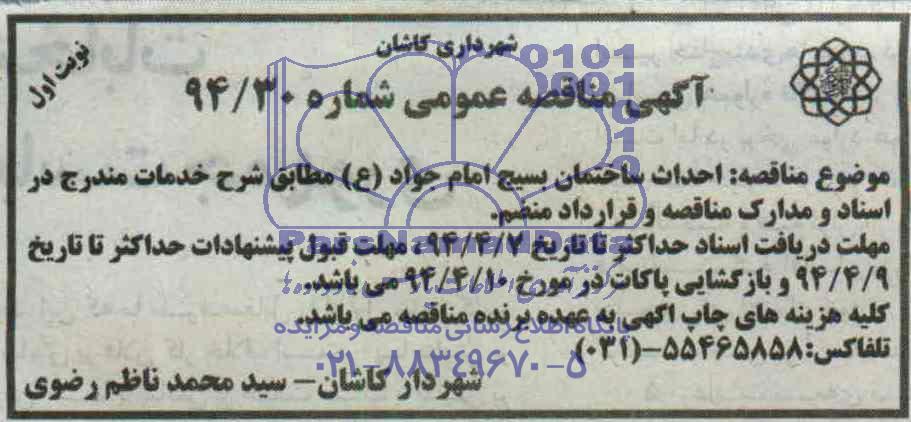 شهرداری کاشان
نوبت اول
آگهی مناقصه عمومی شماره ۹۴/۳۰
موضوع مناقصه: احداث ساختمان بسیج امام جواد (ع) مطابق شرح خدمات مندرج در
اسناد و مدارک مناقصه و قرارداد منضم.
مهلت دریافت اسناد حداکثر تا تاریخ ۹۴/۴/۷، مهلت قبول پیشنهادات حداکثر تا تاریخ
۹۴/۴/۹ و بازگشایی پاکات در مورخ ۹۴/۴/۱۰ می باشد.
کلیه هزینه های چاپ آگهی به عهده برنده مناقصه می باشد.
پایگاه اطلاع رسانی مناقصه و مزایده
تلفاکس: ۵۵۴۶۵۸۵۸-(۰۳۱)
۰۲۱-۸۸۳۴۹۶۷۰-۵
شهردار کاشان – سید محمد ناظم رضوی